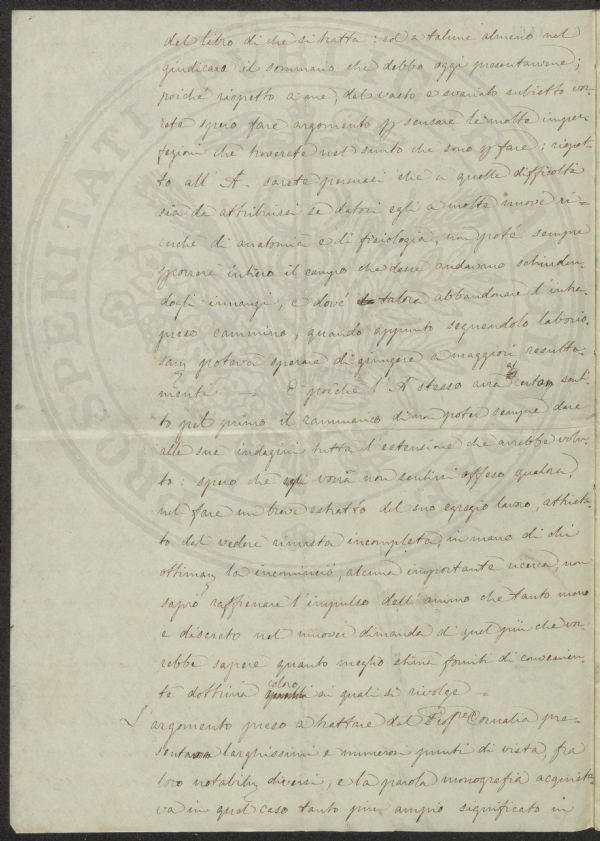 del libro di che si tratta: ed a talune almeno nel
giudicare il sommario che debbo oggi presentarvene;
poiché rispetto a me, del vasto e svariato subietto vor-
rete spero fare argomento p scusare le molte imper-
fezioni che troverete nel sunto che sono p fare; rispet-
to all' A. sarete persuasi che a quelle difficoltà
sia da attribuirsi se datosi egli a molte nuove ri-
cerche di anatomia e di fisiologia, non poté sempre
percorrere intiero il campo che desse andavano schiuden-
dogli innanzi, e dové talora abbandonare l'intra-
preso cammino, quando appunto seguendolo laborio-
sam poteva sperare di giungere a maggiori resulta-
menti — E poiché l'A stesso avrà al certo senti-
to pel primo il rammarico di non poter sempre dare
alle sue indagini tutta l'estensione che avrebbe volu-
to: spero che egli vorrà non sentirsi offeso qualora,
nel fare un breve estratto del suo egregio lavoro, attrista-
to dal vedere rimasta incompleta, in mano di chi
ottimam la incominciò, alcuna importante ricerca, non
saprò raffrenare l'impulso dell'animo che tanto meno
è discreto nel muover dimanda di quel più che vor-
rebbe sapere quanto meglio stima forniti di convenien-
te dottrina coloro ai quali si rivolge —
L'argomento preso a trattare dal Profre Cornalia pre-
senta larghissimi e numerosi punti di vista, fra
loro notabilm diversi, e la parola monografia acquista-
va in quel caso tanto più ampio significato in
PROSPERITATI